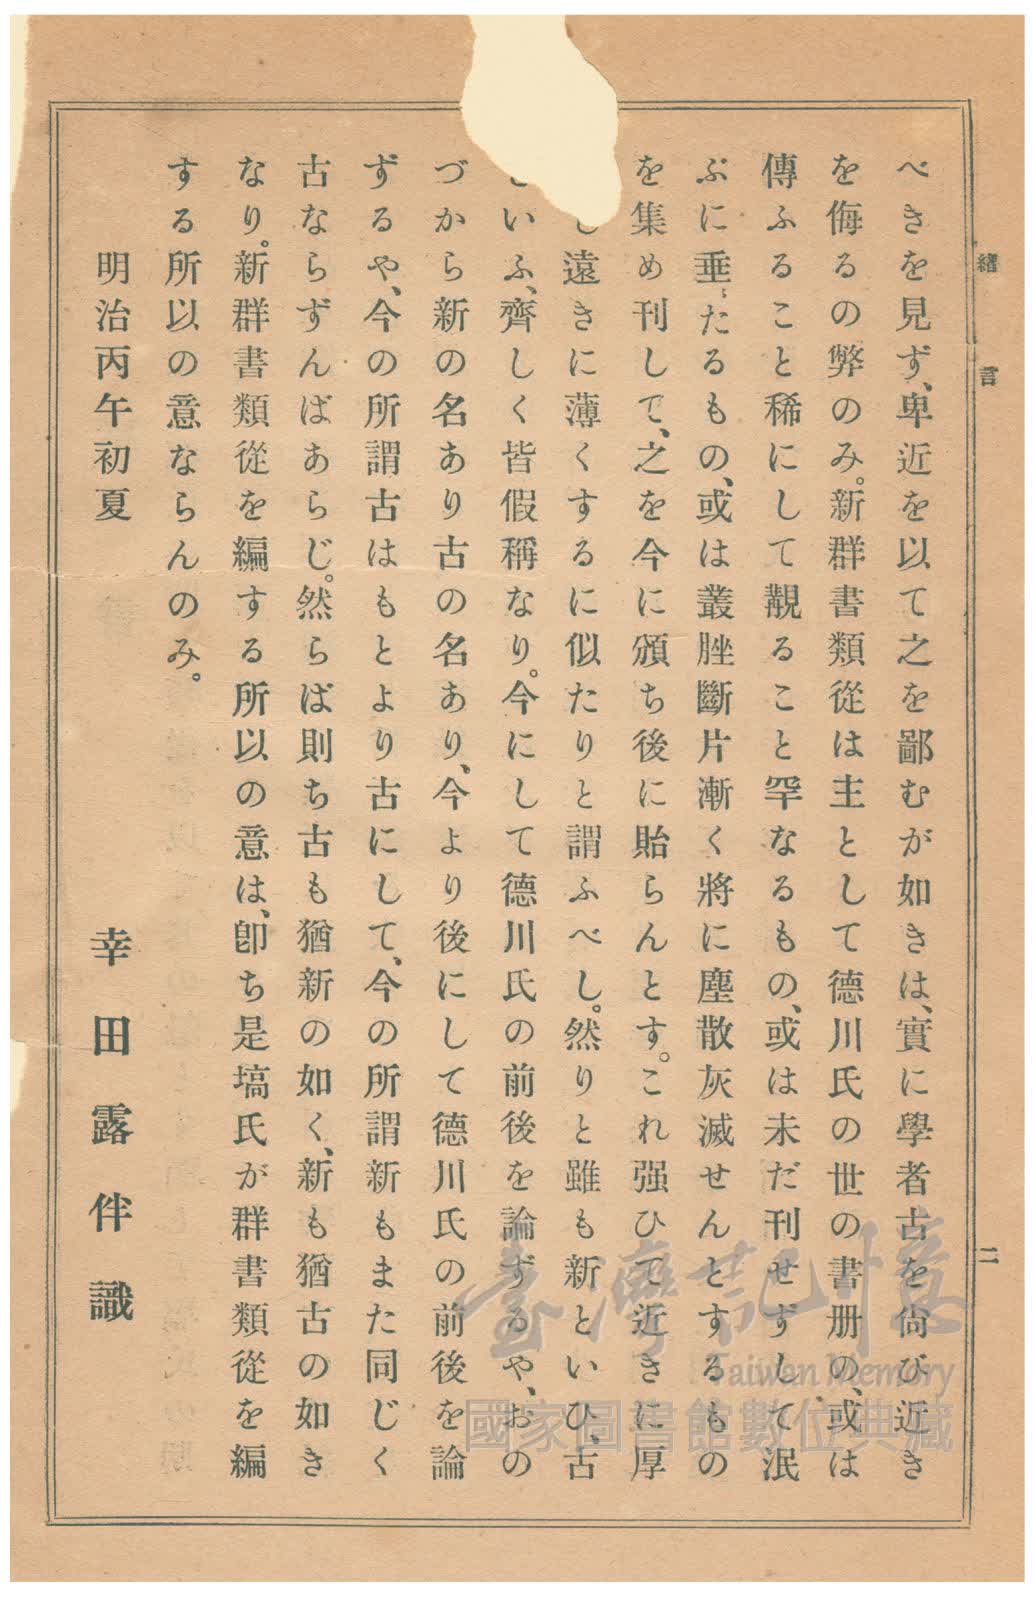 緒言
二
べきを見ず、卑近を以て之を鄙むが如きは、實に學者古を尙び近き
を侮るの弊のみ。新群書類從は主として德川氏の世の書册の、或は
傳ふること稀にして覯ること罕なるもの、或は未だ刊せずして泯
ぶに垂たるもの、或は叢脞斷片漸く將に塵散灰滅せんとするもの
を集め刊して、之を今に頒ち後に貽らんとす。これ强ひて近きに厚
遠きに薄くするに似たりと謂ふべし。然りと雖も新といひ、古
いふ、齊しく皆假稱なり。今にして德川氏の前後を論ずるや、おの
づから新の名あり古の名あり、今より後にして德川氏の前後を論
ずるや、今の所謂古はもとより古にして、今の所謂新もまた同じく
古ならずんばあらじ。然らば則ち古も猶新の如く、新も猶古の如き
なり。新群書類從を編する所以の意は、卽ち是塙氏が群書類從を編
する所以の意ならんのみ。
明治丙午初夏
幸田露伴識
臺灣記憶
Taiwan Memory
國家圖書館數位典藏